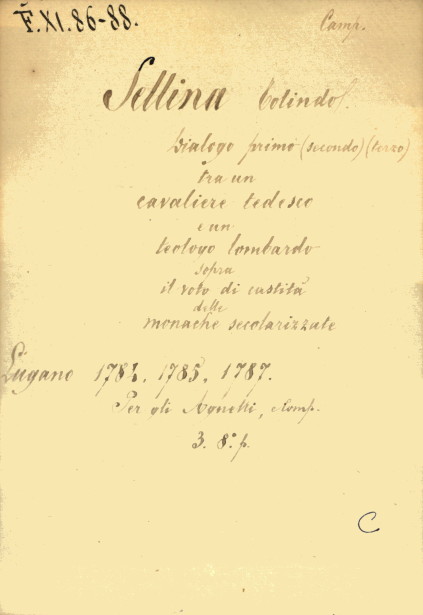 F̄.XI.86-88.
Camp.
Sellina Colindo.
Dialogo primo (secondo) (terzo)
tra un
cavaliere tedesco
e un
teologo lombardo
sopra
il voto di castità
delle
monache secolarizzate
Lugano 1784. 1785. 1787.
Per gli Agnelli, Comp.
3. 8° p.
C